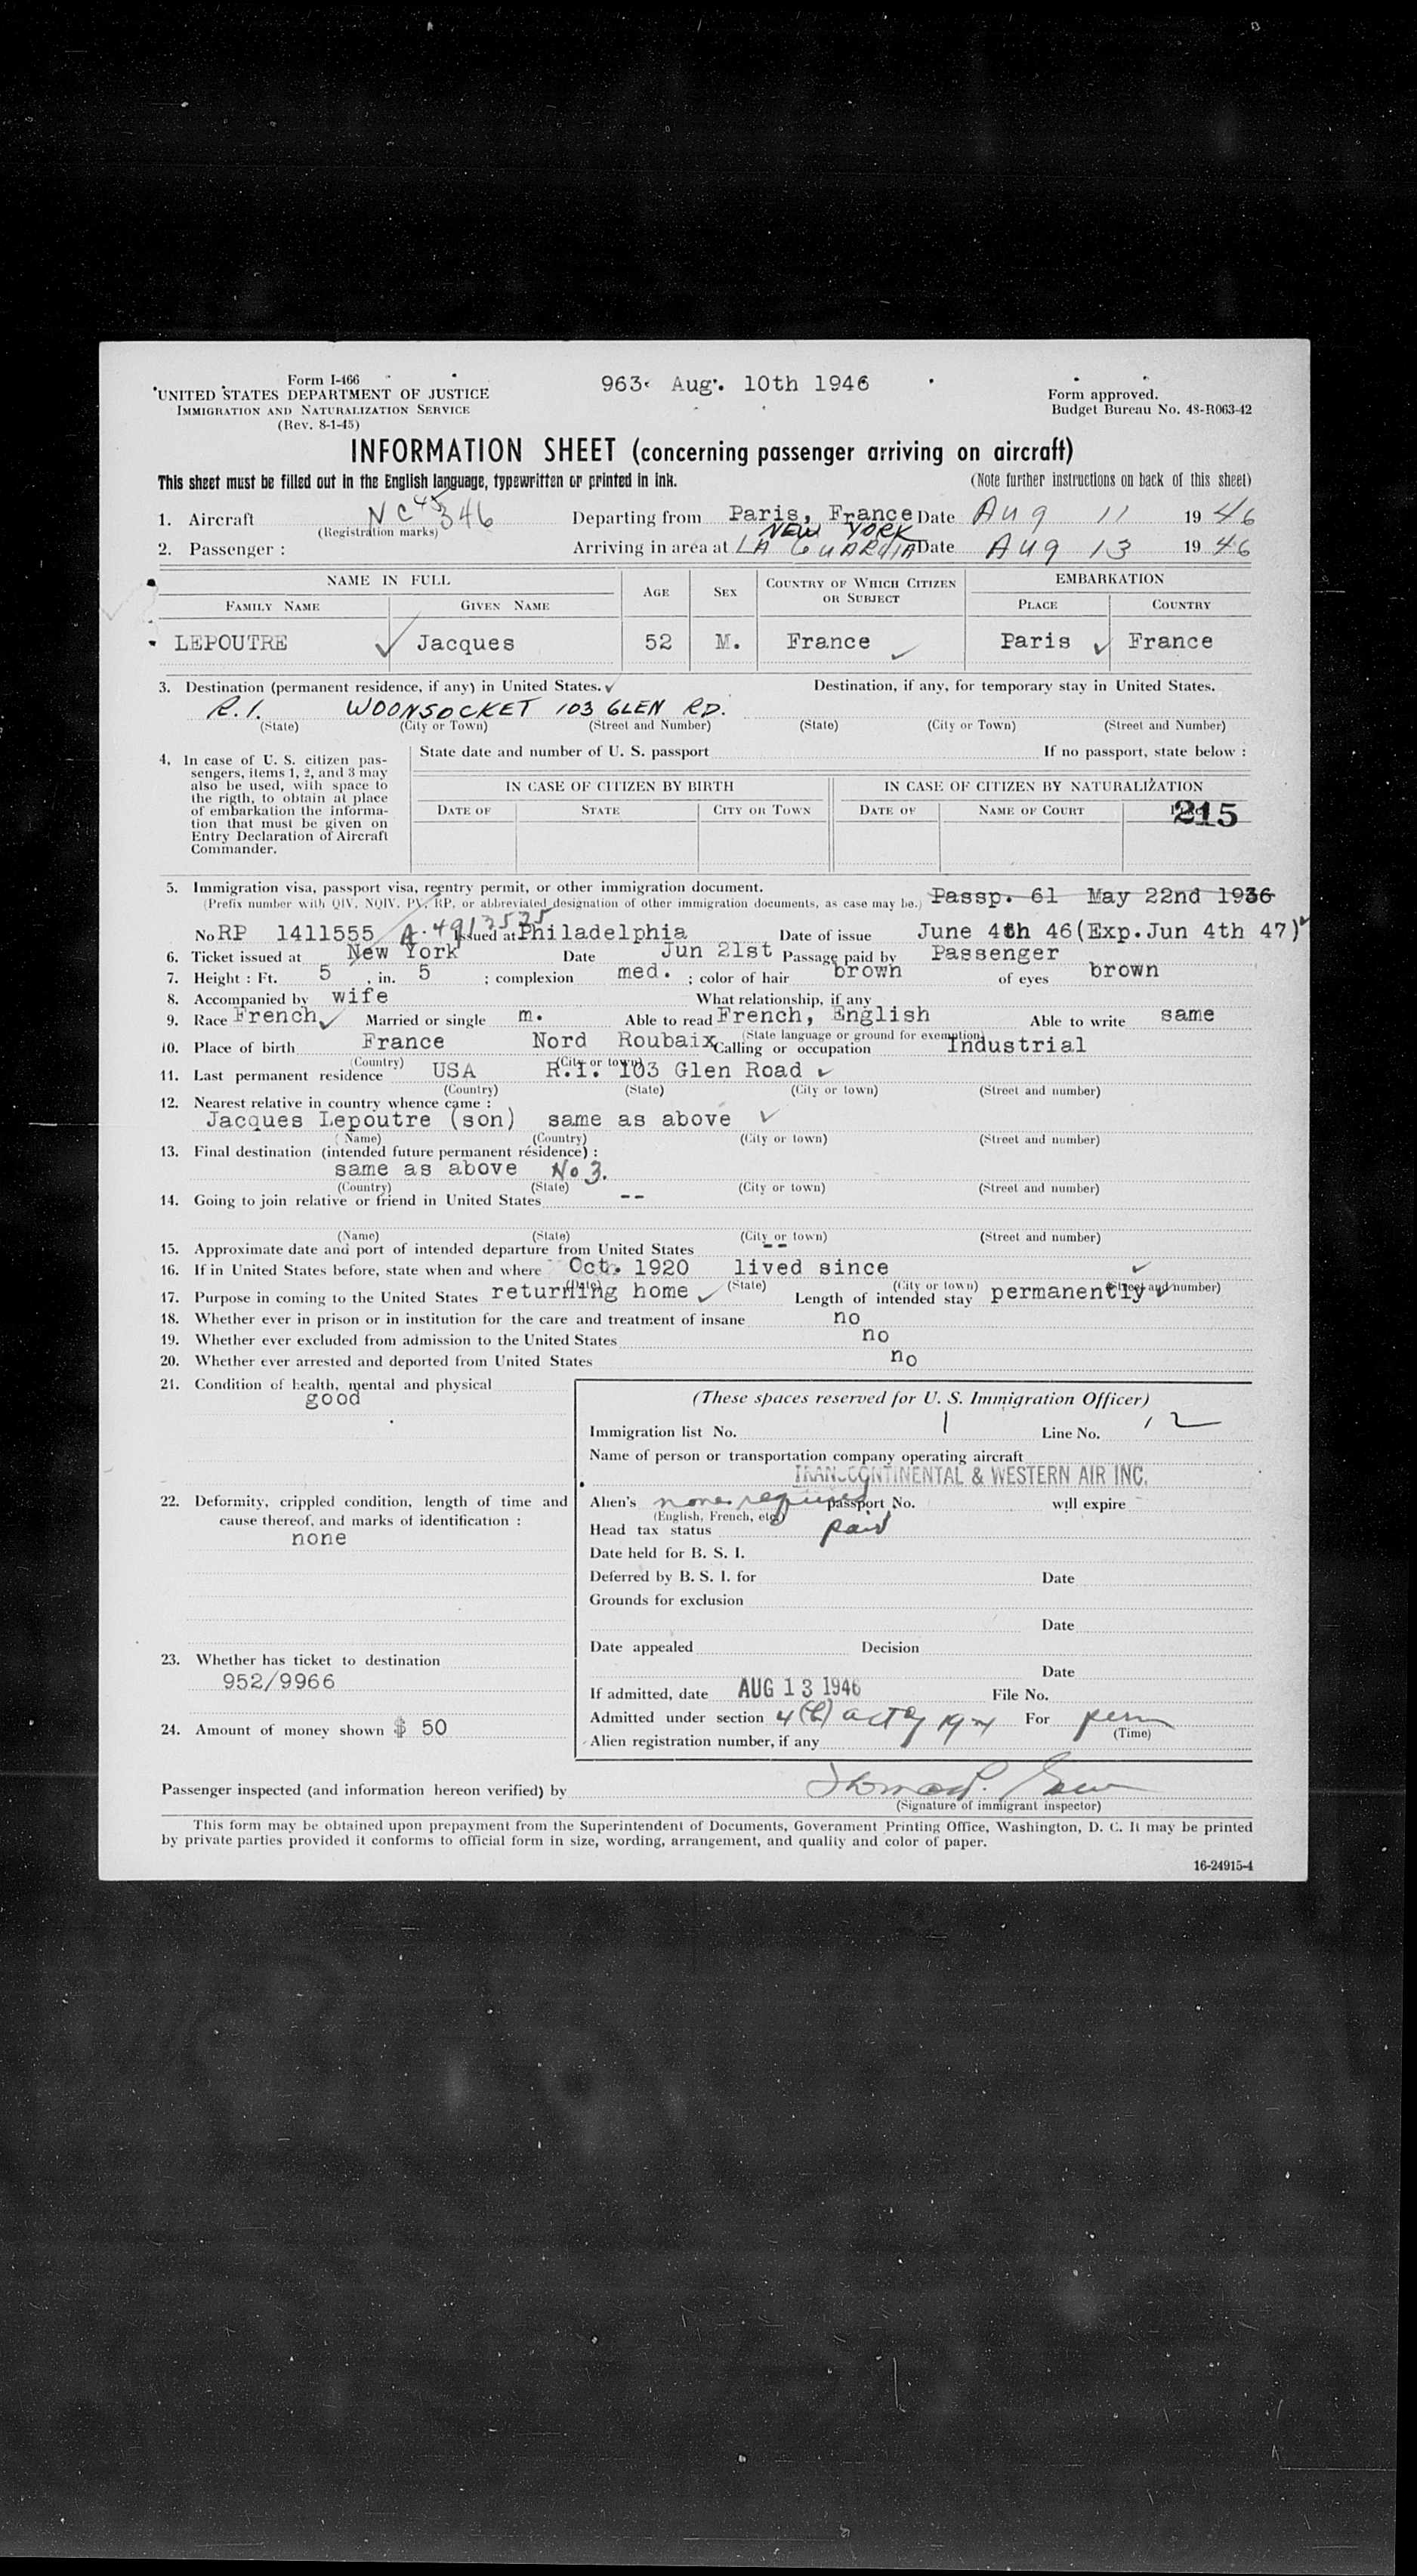 Form I-466
963 Aug. 10th 1946
UNITED STATES DEPARTMENT OF JUSTICE
Form approved.
IMMIGRATION AND NATURALIZATION SERVICE
Budget Bureau No. 43-R063-42
(Rev. 8-1-45)
INFORMATION SHEET (concerning passenger arriving on aircraft)
This sheet must be filled out in the English language, typewritten or printed in ink. (Note further instructions on back of this sheet)
1. Aircraft NC 45346 Departing from Paris, France Date Aug 11 19 46
(Registration marks)
NEW YORK
2. Passenger : Arriving in area at LA GUARDIA Date Aug 13 19 46
NAME IN FULL AGE SEX COUNTRY OF WHICH CITIZEN OR SUBJECT EMBARKATION
FAMILY NAME GIVEN NAME PLACE COUNTRY
LEPOUTRE Jacques 52 M. France Paris France
3. Destination (permanent residence, if any) in United States. Destination, if any, for temporary stay in United States.
R.I. WOONSOCKET 103 GLEN RD.
(State) (City or Town) (Street and Number) (State) (City or Town) (Street and Number)
4. In case of U. S. citizen pas-
sengers, items 1, 2, and 3 may
also be used, with space to
the rigth, to obtain at place
of embarkation the informa-
tion that must be given on
Entry Declaration of Aircraft
Commander.
State date and number of U. S. passport If no passport, state below :
IN CASE OF CITIZEN BY BIRTH IN CASE OF CITIZEN BY NATURALIZATION
DATE OF STATE CITY OR TOWN DATE OF NAME OF COURT
215
5. Immigration visa, passport visa, reentry permit, or other immigration document.
(Prefix number with QIV, NQIV, PV, RP, or abbreviated designation of other immigration documents, as case may be.) Passp. 61 May 22nd 1936
No RP 1411555 A-4913525 Issued at Philadelphia Date of issue June 4th 46(Exp.Jun 4th 47)
6. Ticket issued at New York Date Jun 21st Passage paid by Passenger
7. Height : Ft. 5 , in. 5 ; complexion med. ; color of hair brown of eyes brown
8. Accompanied by wife What relationship, if any
9. Race French Married or single m. Able to read French, English Able to write same
(State language or ground for exemption)
10. Place of birth France Nord Roubaix Calling or occupation Industrial
(Country) (City or town)
11. Last permanent residence USA R.I. 103 Glen Road
(Country) (State) (City or town) (Street and number)
12. Nearest relative in country whence came :
Jacques Lepoutre (son) same as above
(Name) (Country) (City or town) (Street and number)
13. Final destination (intended future permanent résidence) :
same as above No 3.
(Country) (State) (City or town) (Street and number)
14. Going to join relative or friend in United States --
(Name) (State) (City or town) (Street and number)
15. Approximate date and port of intended departure from United States --
16. If in United States before, state when and where Oct. 1920 lived since
(Date) (State) (City or town) (Street and number)
17. Purpose in coming to the United States returning home Length of intended stay permanently
18. Whether ever in prison or in institution for the care and treatment of insane no
19. Whether ever excluded from admission to the United States no
20. Whether ever arrested and deported from United States no
21. Condition of health, mental and physical
good
22. Deformity, crippled condition, length of time and
cause thereof, and marks of identification :
none
23. Whether has ticket to destination
952/9966
24. Amount of money shown $ 50
(These spaces reserved for U. S. Immigration Officer)
Immigration list No. 1 Line No. 12
Name of person or transportation company operating aircraft
TRANSCONTINENTAL & WESTERN AIR INC.
Alien's none required passport No. will expire
(English, French, etc.)
Head tax status paid
Date held for B. S. I.
Deferred by B. S. I. for Date
Grounds for exclusion
Date
Date appealed Decision
Date
If admitted, date AUG 13 1946 File No.
Admitted under section 4(b) act of 1924 For perm
(Time)
Alien registration number, if any
Passenger inspected (and information hereon verified) by
(Signature of immigrant inspector)
This form may be obtained upon prepayment from the Superintendent of Documents, Government Printing Office, Washington, D. C. It may be printed
by private parties provided it conforms to official form in size, wording, arrangement, and quality and color of paper.
16-24915-4